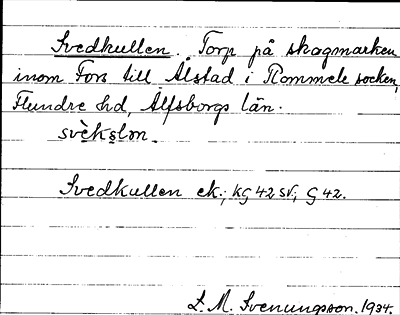 Svedkullen. Torp på skogsmarken
inom Fors till Ålstad i Rommele socken,
Flundre hd, Älfsborgs län.
svèkslon.
Svedkullen ek.; kG 42 SV; G 42.
L. M. Svenungsson. 1934.